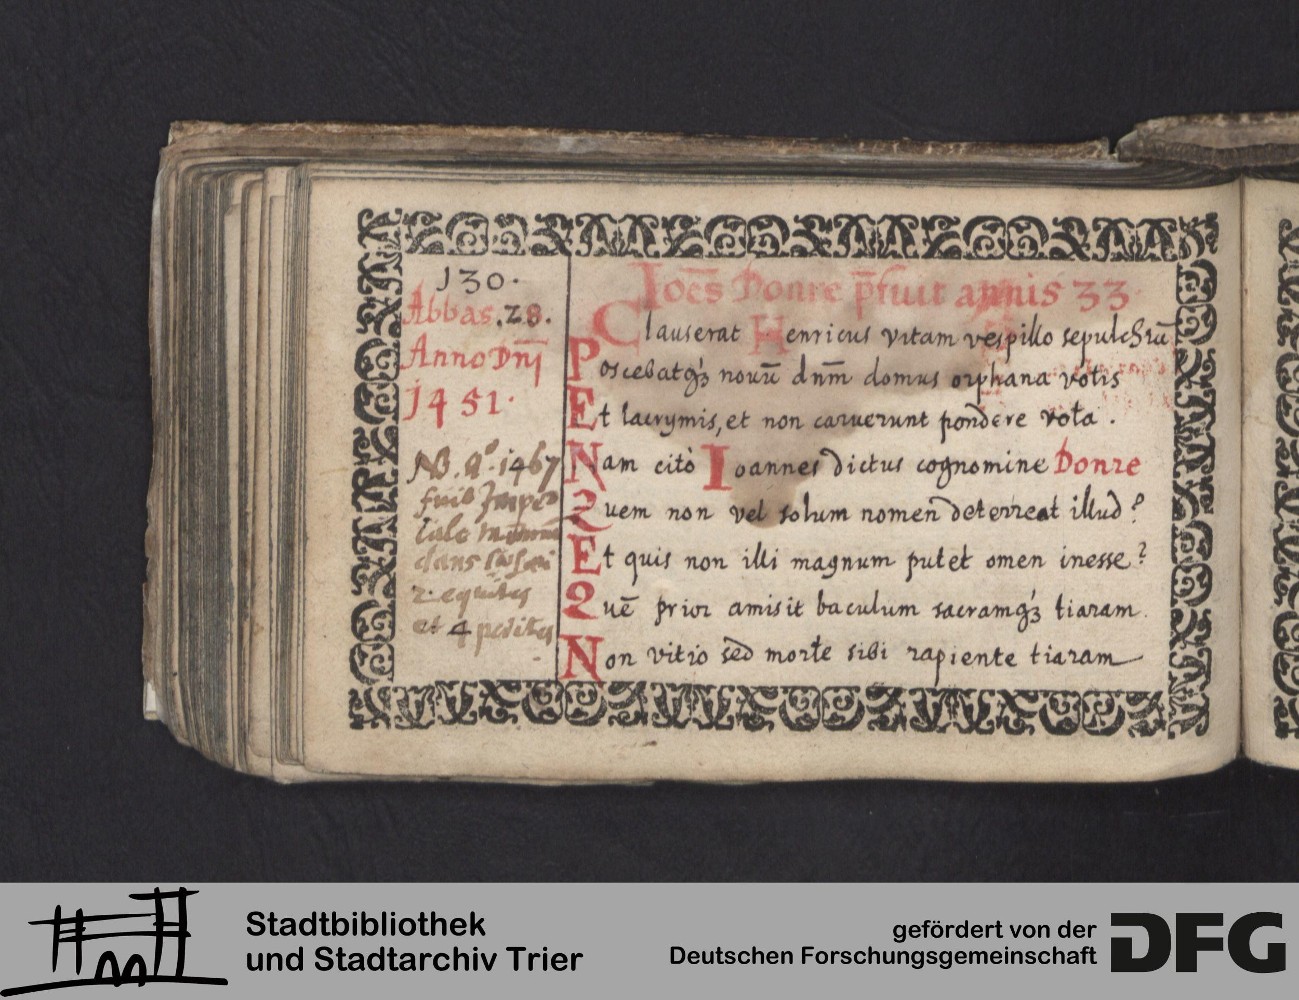 130.
Abbas .28.
Anno Dnĩ
1451.
NB. Aº. 1467
fuit Imper
dans
2. equites
et 4 pedites
Ioēs Donre p̄fuit annis 33
Clauserat Henricus vitam vespillo sepulchrū
Poscebatqȝ nouū dnm̄ domus orphana votis
Et lacrymis, et non caruerunt pondere vota.
Nam citò Ioannes dictus cognomine Donre
Quem non vel solum nomen deterreat illud?
Et quis non illi magnum putet omen inesse?
Quē prior amisit baculum sacramqȝ tiaram.
Non vitio sed morte sibi rapiente tiaram
Stadtbibliothek
und Stadtarchiv Trier
gefördert von der
Deutschen Forschungsgemeinschaft
DFG